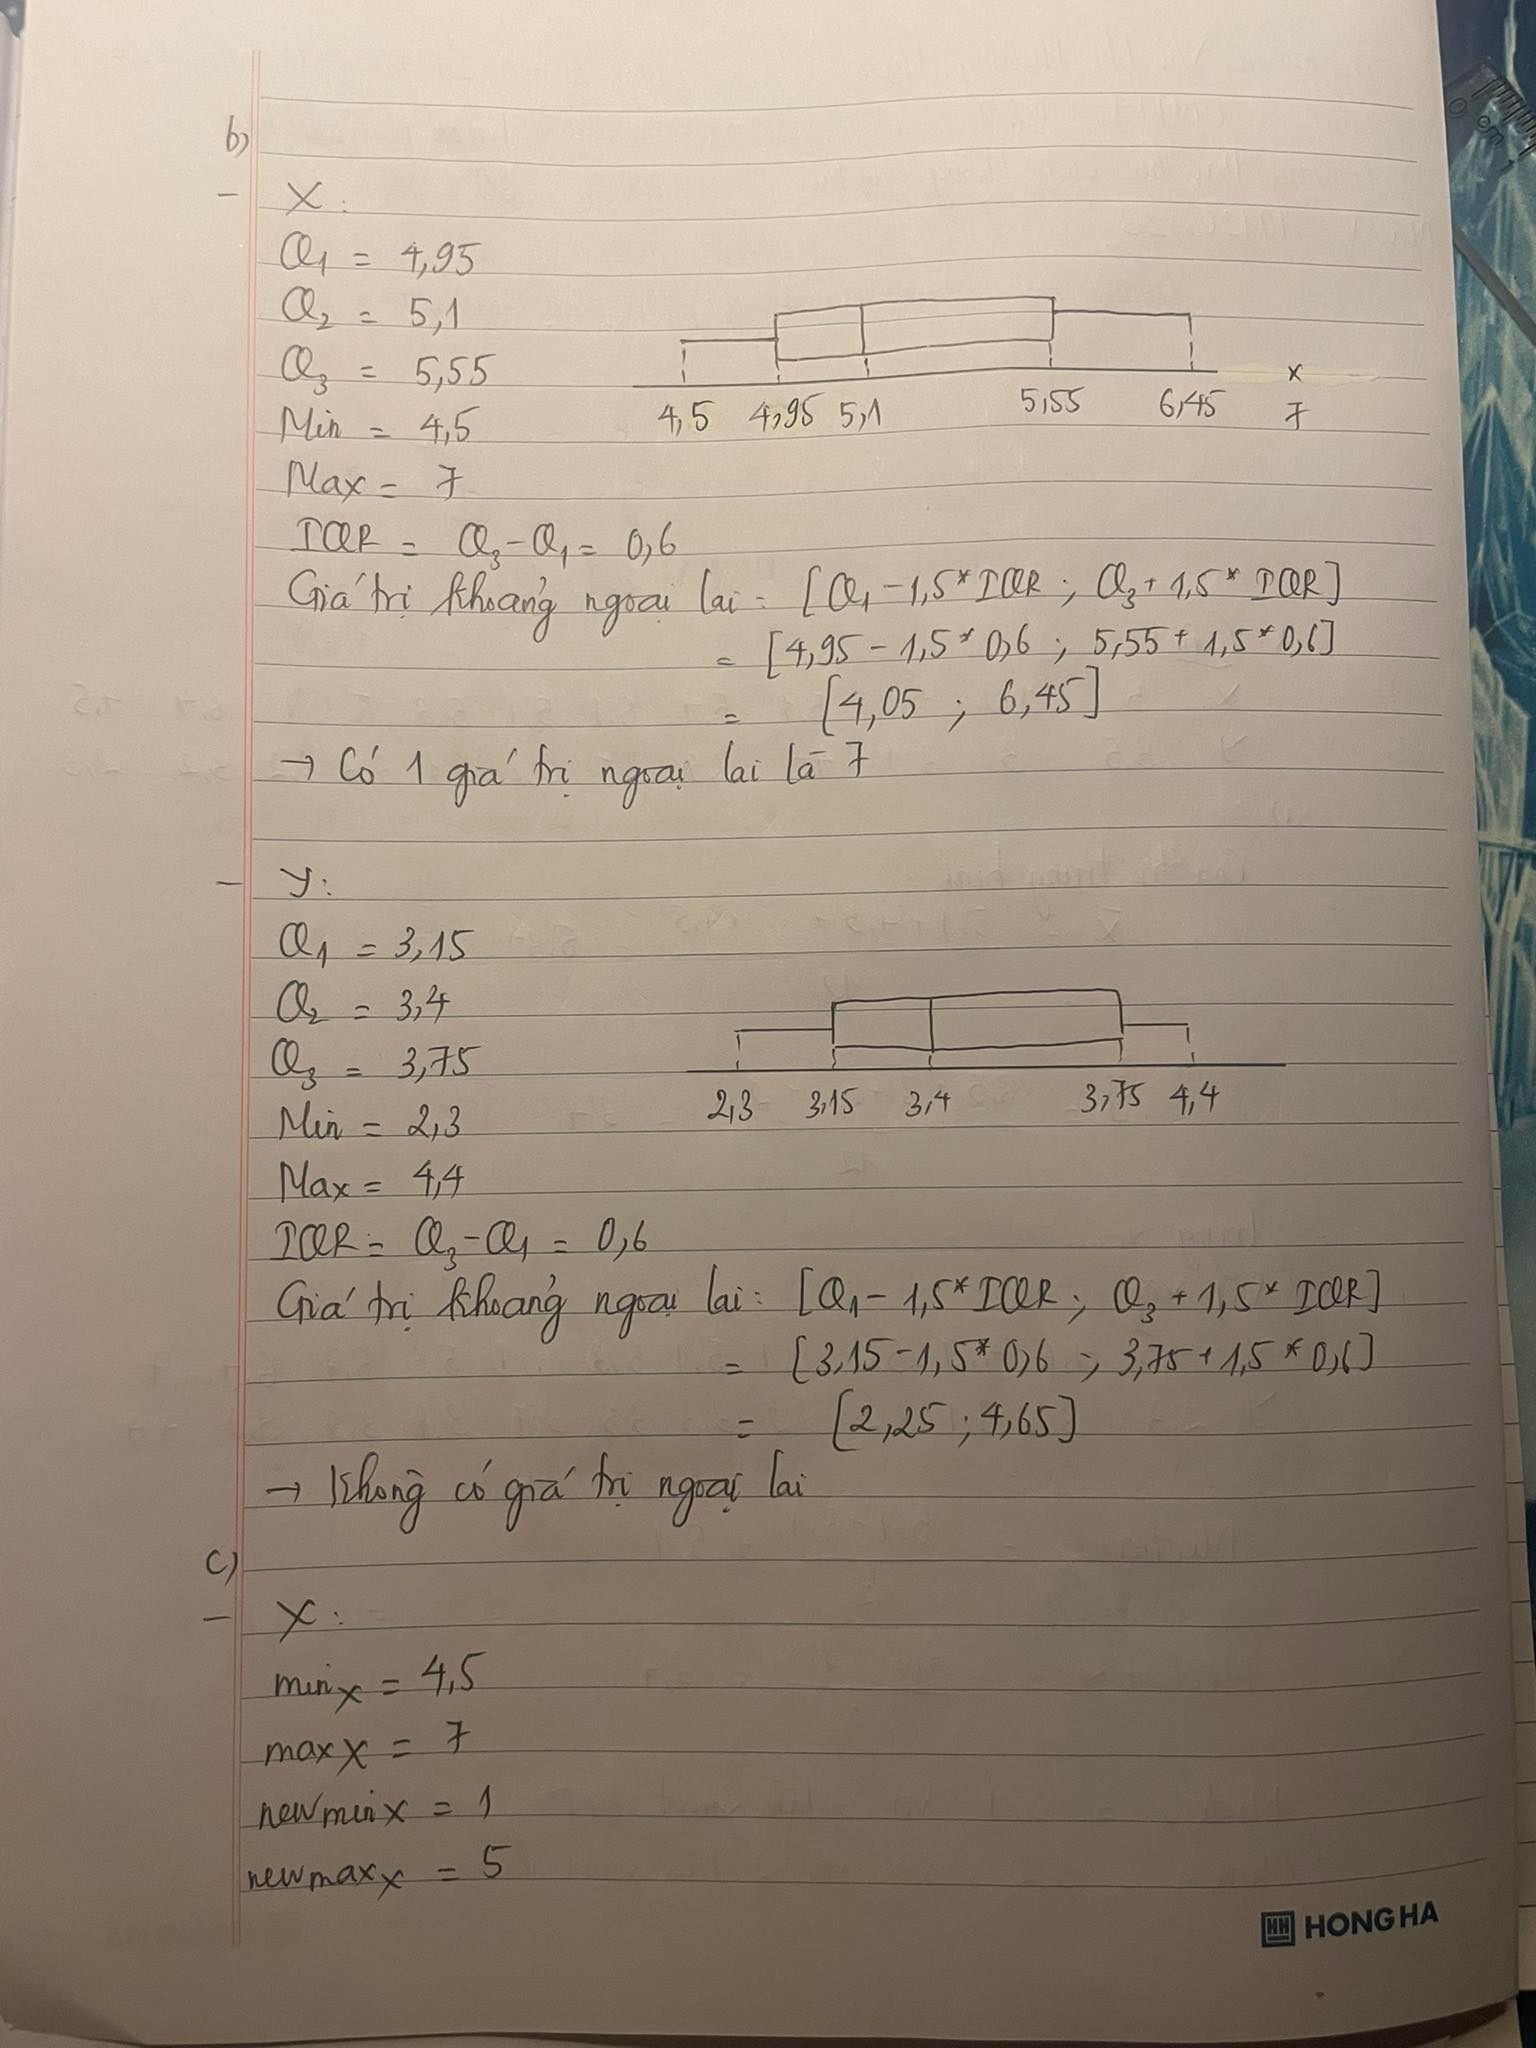 b)
- X:
Q1 = 4,95
Q2 = 5,1
Q3 = 5,55
4,5 4,95 5,1 5,55 6,45 x 7
Min = 4,5
Max = 7
IQR = Q3 - Q1 = 0,6
Giá trị khoảng ngoại lai = [Q1 - 1,5* IQR ; Q3 + 1,5* IQR]
= [4,95 - 1,5*0,6 ; 5,55 + 1,5*0,6]
= [4,05 ; 6,45]
→ Có 1 giá trị ngoại lai là 7
- Y:
Q1 = 3,15
Q2 = 3,4
Q3 = 3,75
2,3 3,15 3,4 3,75 4,4
Min = 2,3
Max = 4,4
IQR = Q3 - Q1 = 0,6
Giá trị khoảng ngoại lai: [Q1 - 1,5* IQR ; Q3 + 1,5* IQR]
= [3,15 - 1,5*0,6 ; 3,75 + 1,5*0,6]
= [2,25 ; 4,65]
→ Không có giá trị ngoại lai
c)
- X:
minx = 4,5
maxx = 7
newminx = 1
newmaxx = 5
HH HONG HA